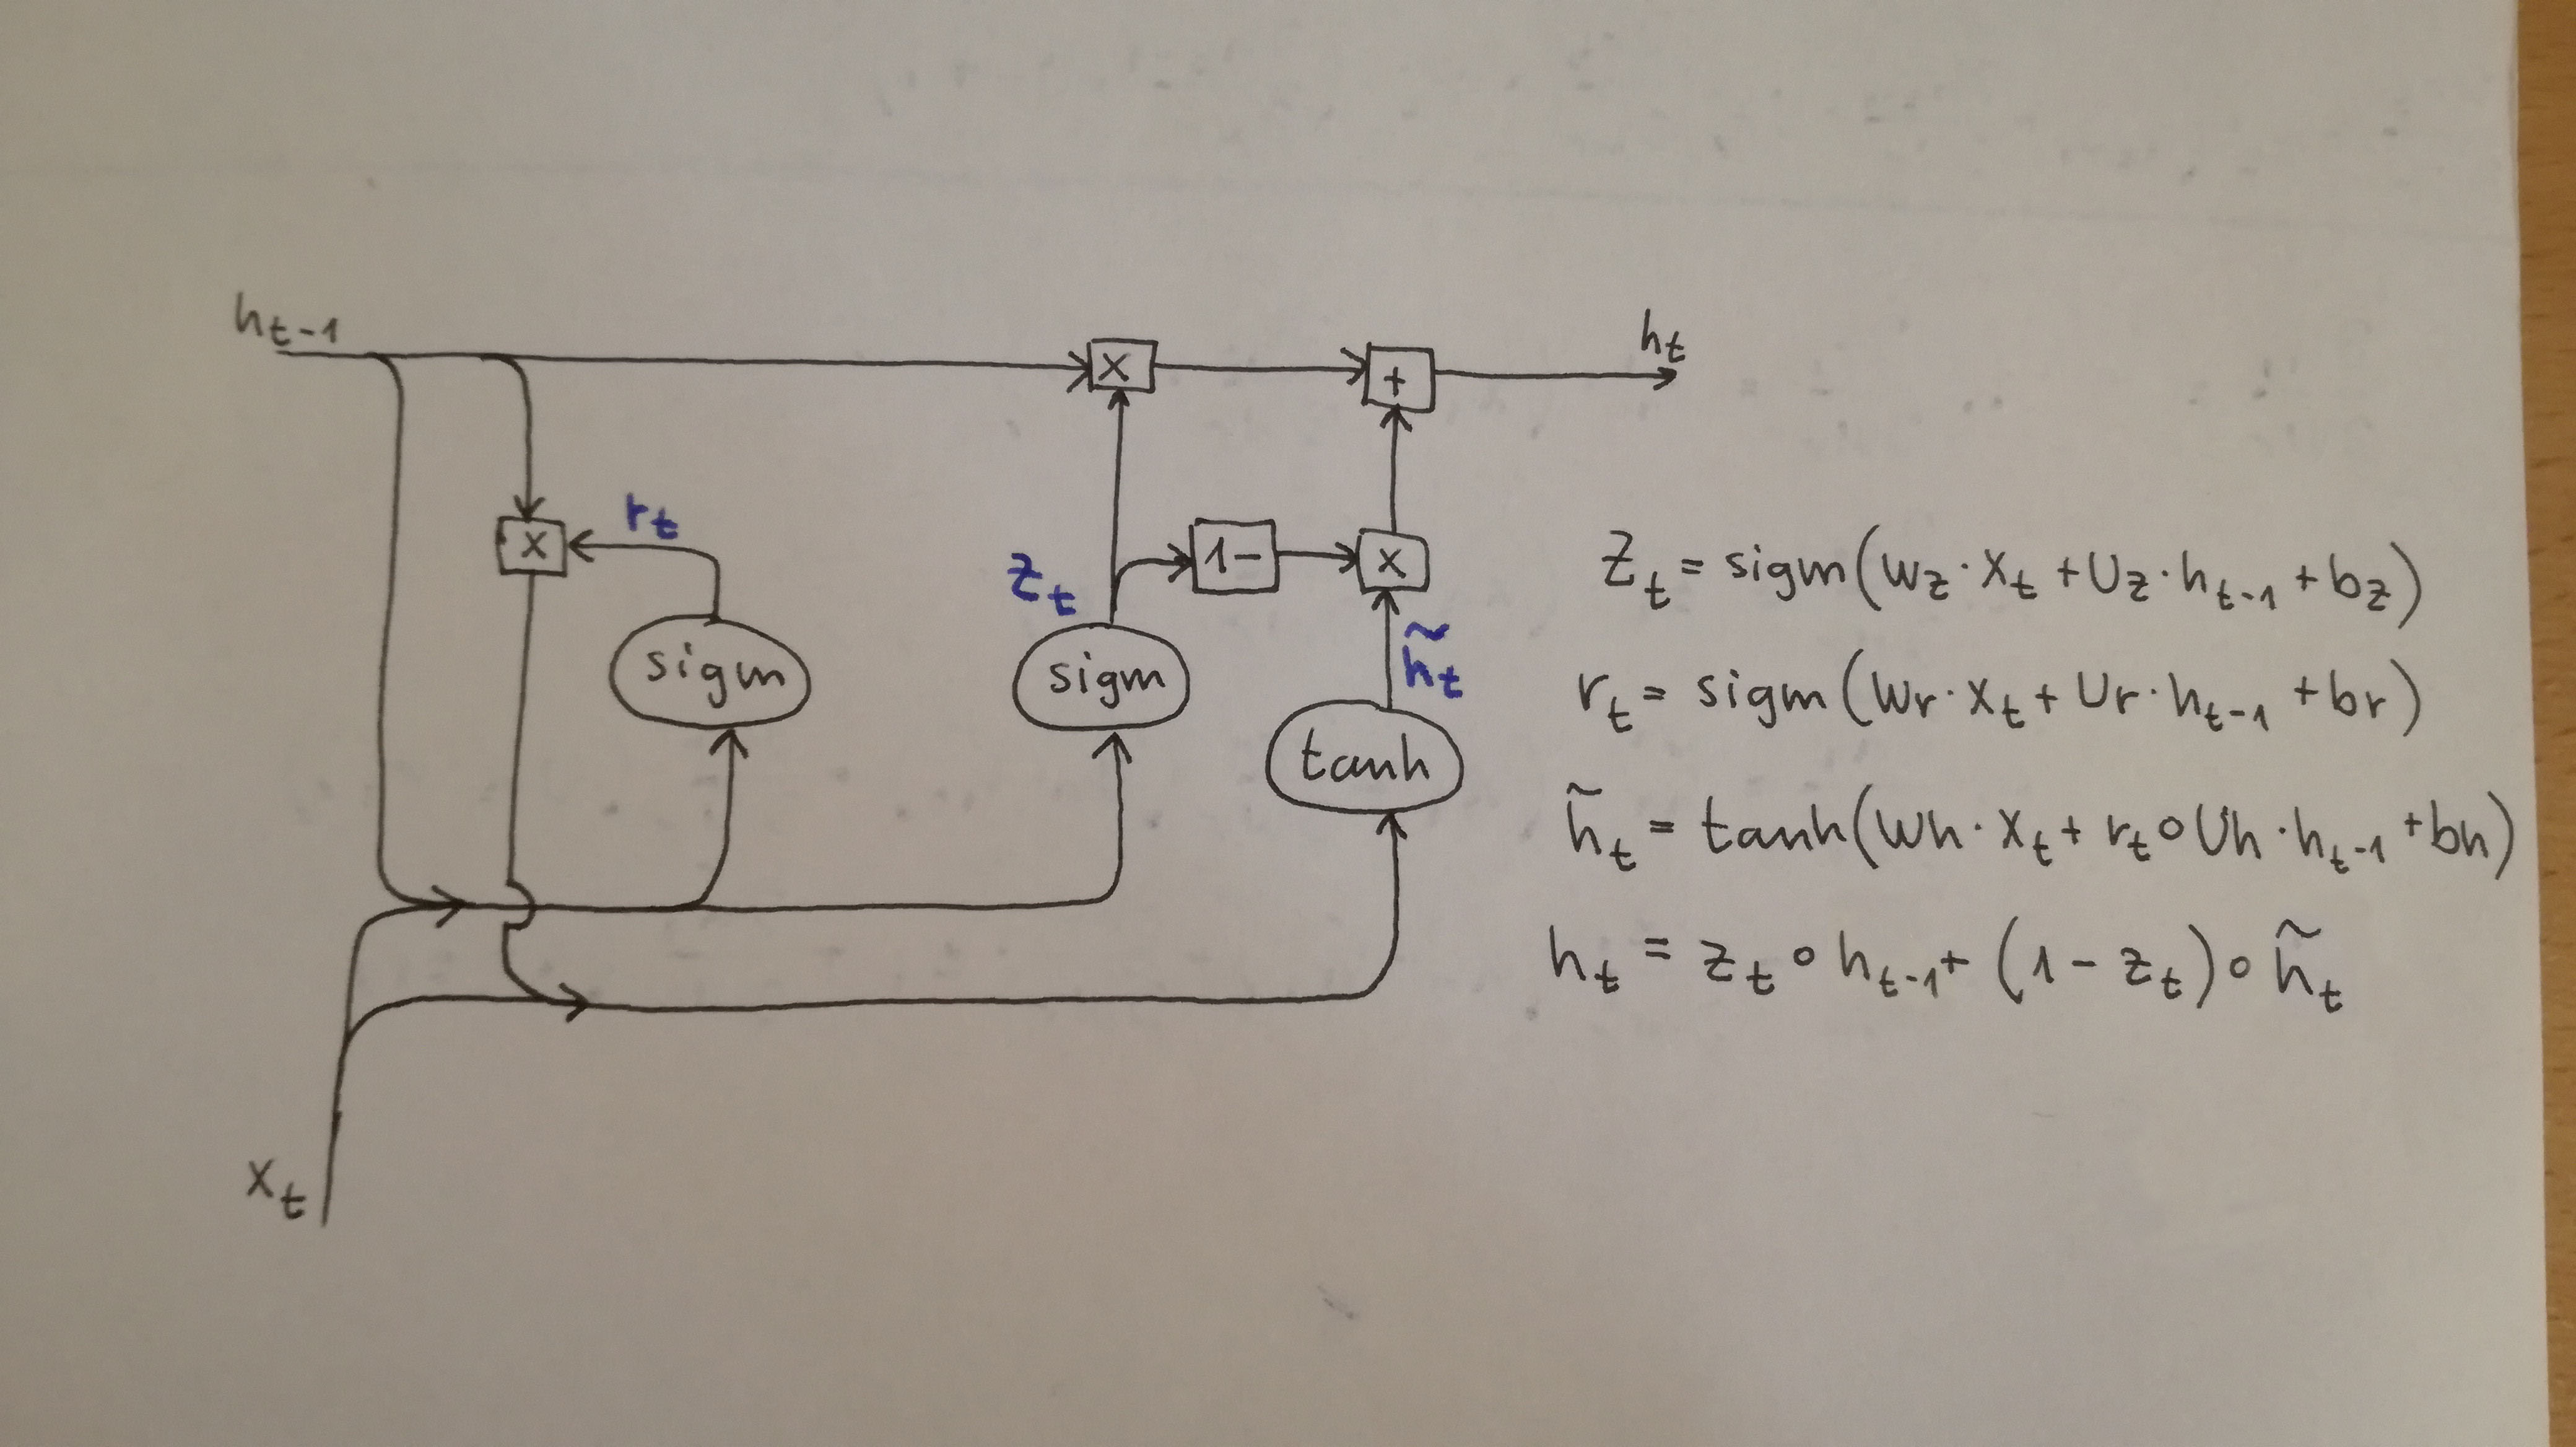 h_{t-1}
h_t
x
+
r_t
x
z_t
1-
x
sigm
sigm
h̃_t
tanh
x_t
z_t = sigm(Wz · x_t + Uz · h_{t-1} + bz)
r_t = sigm(Wr · x_t + Ur · h_{t-1} + br)
h̃_t = tanh(Wh · x_t + r_t ∘ Uh · h_{t-1} + bh)
h_t = z_t ∘ h_{t-1} + (1 - z_t) ∘ h̃_t